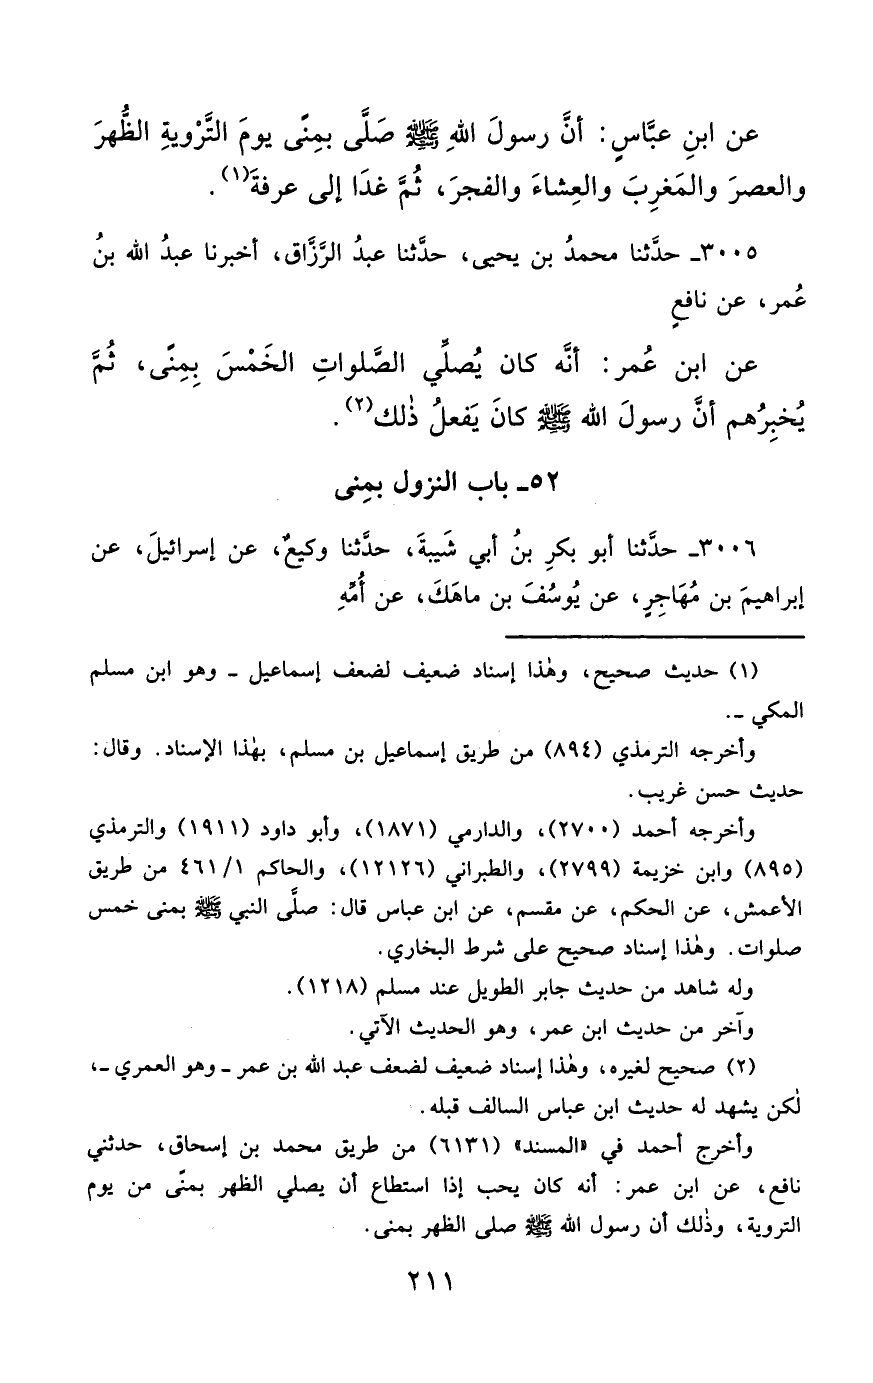 عن ابنِ عبَّاسٍ: أنَّ رسولَ اللهِ ﷺ صَلَّى بمِنًى يومَ التَّرْويةِ الظُّهرَ
والعصرَ والمَغرِبَ والعِشاءَ والفجرَ، ثُمَّ غدَا إلى عرفةَ(١).
٣٠٠٥ـ حدَّثنا محمدُ بن يحيى، حدَّثنا عبدُ الرَّزَّاق، أخبرنا عبدُ الله بنُ
عُمر، عن نافعٍ
عن ابن عُمر: أنَّه كان يُصلِّي الصَّلواتِ الخَمْسَ بِمِنًى، ثُمَّ
يُخبِرُهم أنَّ رسولَ الله ﷺ كانَ يَفعلُ ذٰلك(٢).
٥٢ـ باب النزول بمِنى
٣٠٠٦ـ حدَّثنا أبو بكرِ بنُ أبي شَيبةَ، حدَّثنا وكيعٌ، عن إسرائيلَ، عن
إبراهيمَ بن مُهَاجِرٍ، عن يُوسُفَ بن ماهَكَ، عن أُمِّهِ
(١) حديث صحيح، وهٰذا إسناد ضعيف لضعف إسماعيل ـ وهو ابن مسلم
المكي ـ.
وأخرجه الترمذي (٨٩٤) من طريق إسماعيل بن مسلم، بهٰذا الإسناد. وقال:
حديث حسن غريب.
وأخرجه أحمد (٢٧٠٠)، والدارمي (١٨٧١)، وأبو داود (١٩١١) والترمذي
(٨٩٥) وابن خزيمة (٢٧٩٩)، والطبراني (١٢١٢٦)، والحاكم ١/ ٤٦١ من طريق
الأعمش، عن الحكم، عن مقسم، عن ابن عباس قال: صلَّى النبي ﷺ بمنى خمس
صلوات. وهٰذا إسناد صحيح على شرط البخاري.
وله شاهد من حديث جابر الطويل عند مسلم (١٢١٨).
وآخر من حديث ابن عمر، وهو الحديث الآتي.
(٢) صحيح لغيره، وهٰذا إسناد ضعيف لضعف عبد الله بن عمر ـ وهو العمري ـ،
لٰكن يشهد له حديث ابن عباس السالف قبله.
وأخرج أحمد في «المسند» (٦١٣١) من طريق محمد بن إسحاق، حدثني
نافع، عن ابن عمر: أنه كان يحب إذا استطاع أن يصلي الظهر بمنًى من يوم
التروية، وذٰلك أن رسول الله ﷺ صلى الظهر بمنى.
٢١١